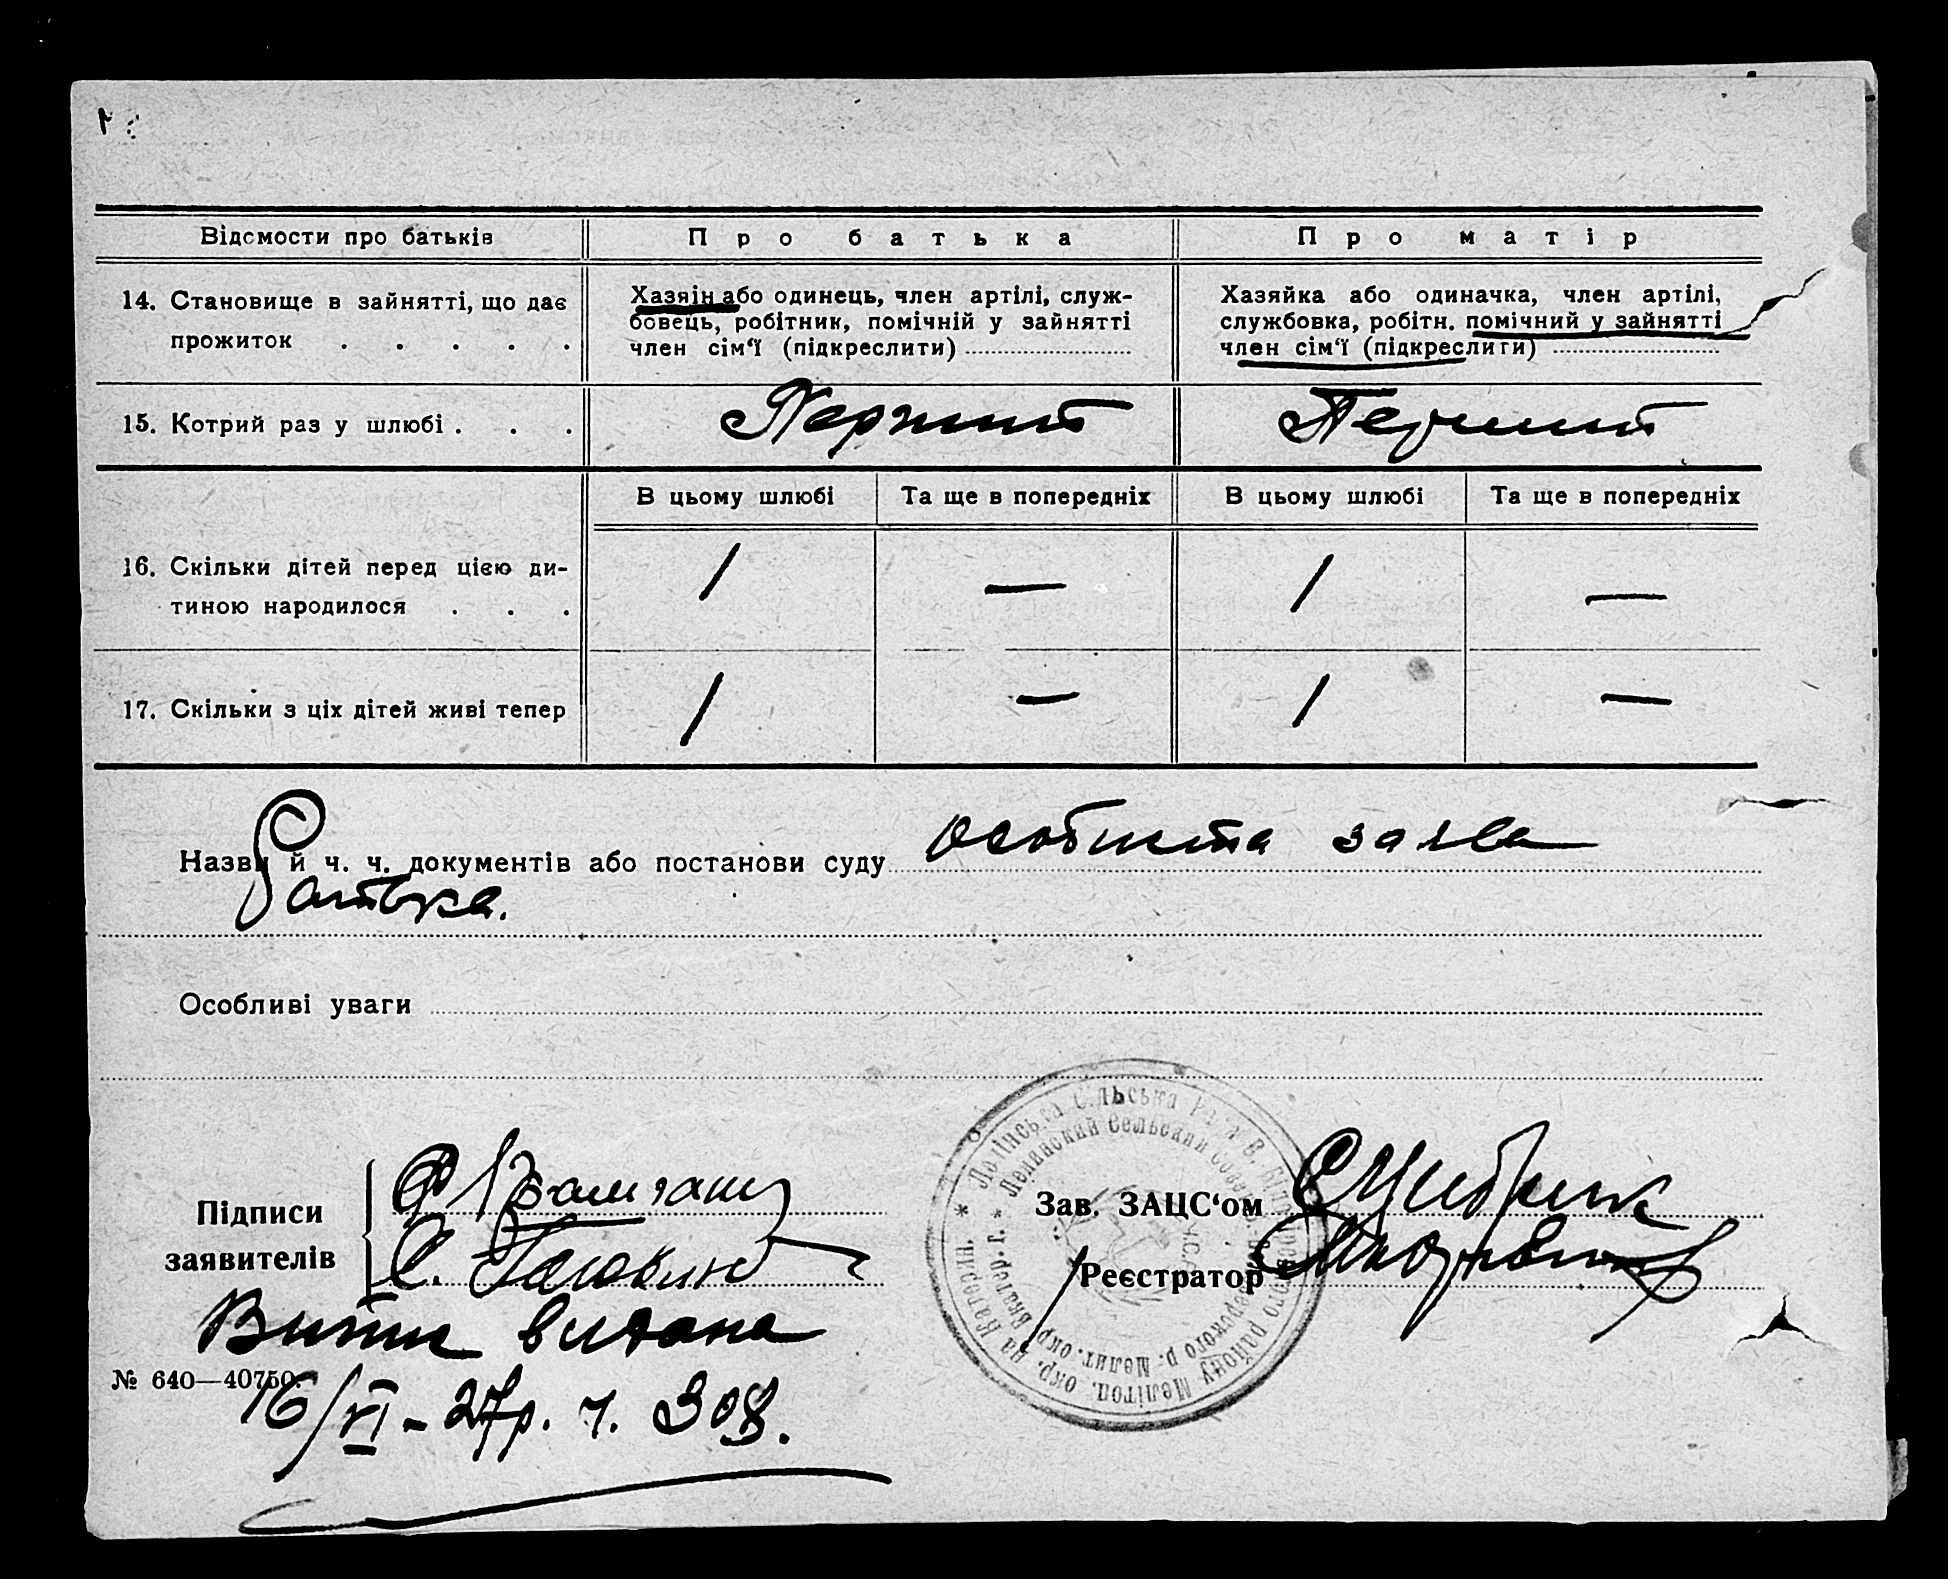 Відомости про батьків
Про батька
Про матір
14. Становище в зайнятті, що дає
прожиток . . . . .
Хазяїн або одинець, член артілі, служ-
бовець, робітник, помічній у зайнятті
член сім‘ї (підкреслити)
Хазяйка або одиначка, член артілі,
службовка, робітн. помічний у зайнятті
член сім‘ї (підкреслити)
15. Котрий раз у шлюбі . . .
Перший
Перший
В цьому шлюбі
Та ще в попередніх
В цьому шлюбі
Та ще в попередніх
16. Скільки дітей перед цією ди-
тиною народилося . . .
1 — 1 —
17. Скільки з ціх дітей живі тепер
1 — 1 —
Назви й ч. ч. документів або постанови суду особиста заява
батька.
Особливі уваги
Підписи
заявителів
Зав. ЗАЦС‘ом
Реєстратор
Витяг видана
№ 640—40750.
16/VI - 27р. ч. 308.